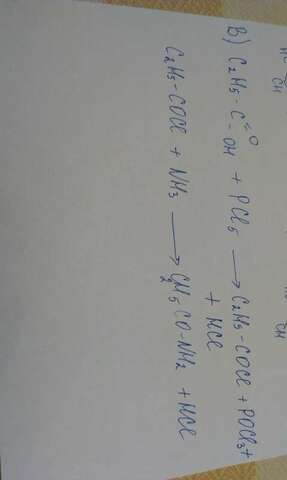 HC
CH
HC
CH
В) C₂H₅-C(=O)-OH + PCl₅ ⟶ C₂H₅-COCl + POCl₃+
+ HCl
C₂H₅-COCl + NH₃ ⟶ C₂H₅CO-NH₂ + HCl